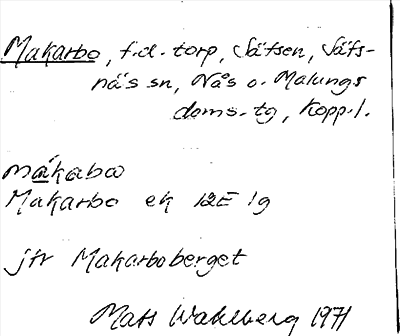 Makarbo, f.d. torp, Säfsen, Säfs-
näs sn, Nås o. Malungs
doms. tg, Kopp. l.
mákabω
Makarbo ek 12E 1g
jfr Makarboberget
Mats Wahlberg 1971